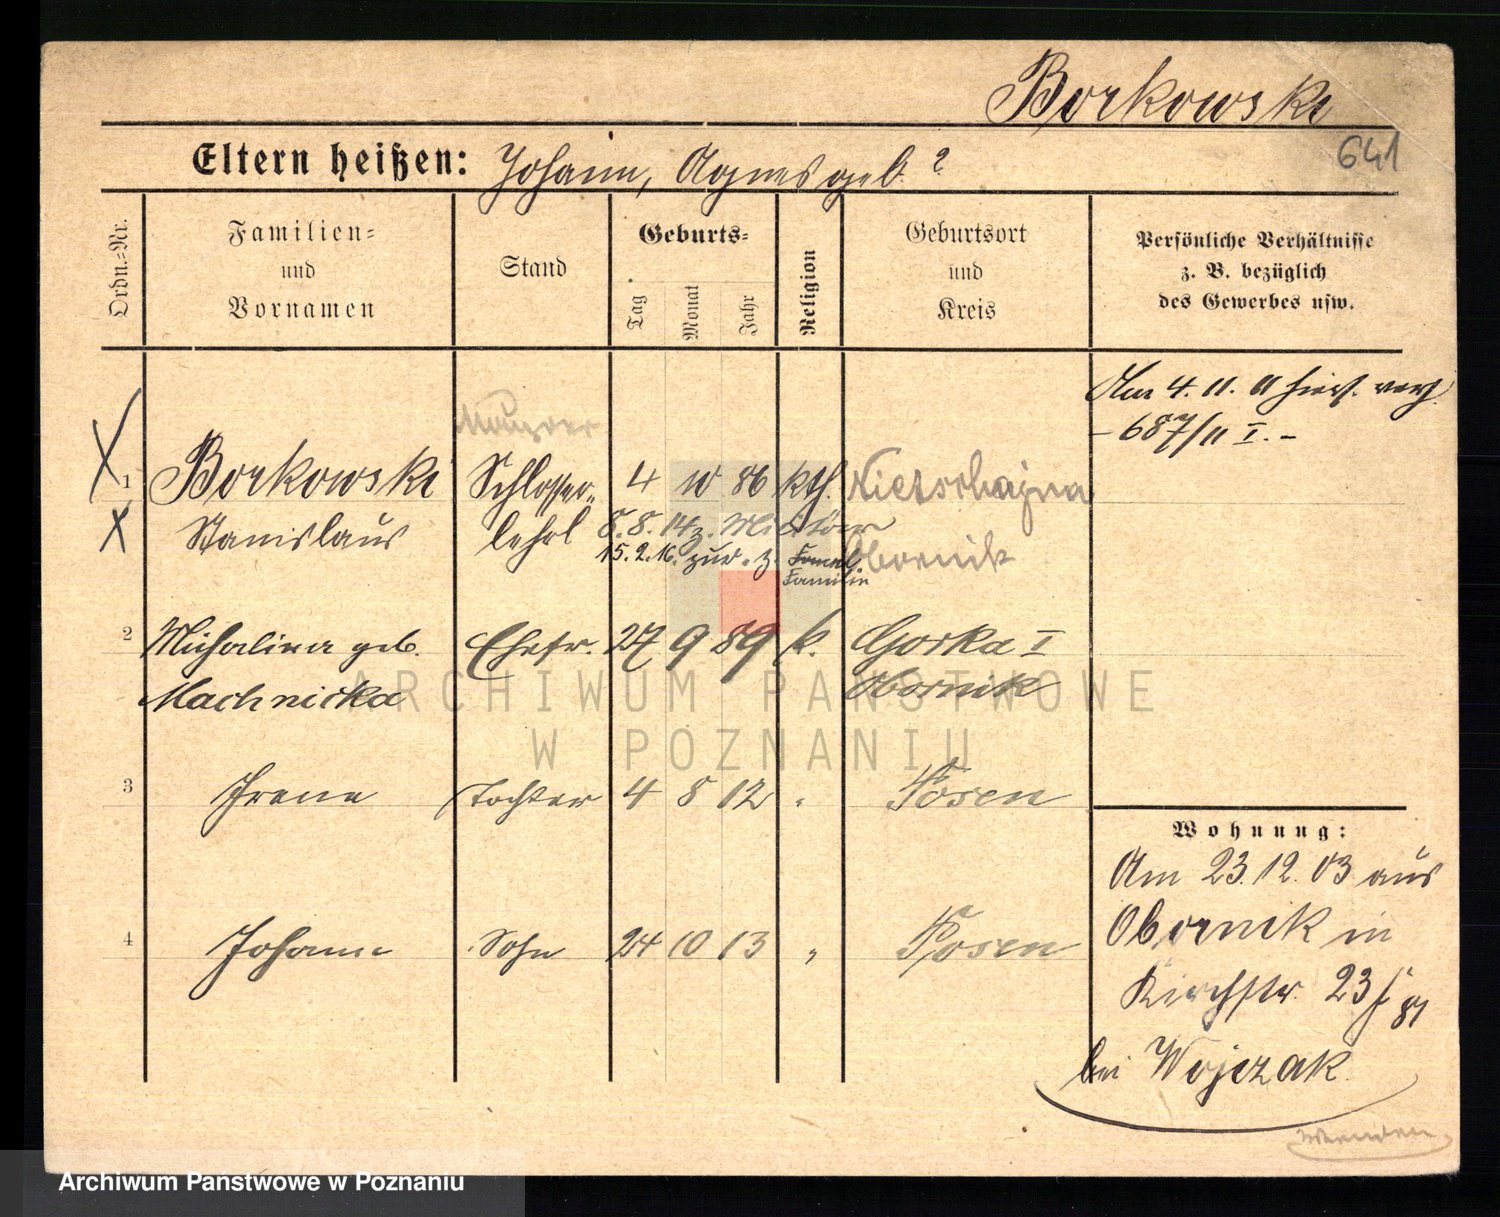 Borkowski
641
Eltern heißen: Johann, Agnes geb. ?
Ordn.-Nr.
Familien- und Vornamen
Stand
Geburts-
Tag
Monat
Jahr
Religion
Geburtsort und Kreis
Persönliche Verhältnisse
z. B. bezüglich
des Gewerbes usw.
Am 4. 11. 11 hier
- 687/11 I. -
1 Borkowski Schlosser- 4 10 86 kth.
Stanislaus lehrl 8. 8. 14 z. Militär Obornik
15. 2. 16. zur. z. Familie
2 Michalina geb. Ehefr. 27 9 89 k. Gorka I
Machnicka Obornik
3 Irene Tochter 4 8 12 " Posen
4 Johann Sohn 24 10 13 " Posen
Wohnung:
Am 23. 12. 03 aus
Obornik in
Kirchstr. 23
bei Wojczak
wenden
ARCHIWUM PAŃSTWOWE
W POZNANIU
Archiwum Państwowe w Poznaniu